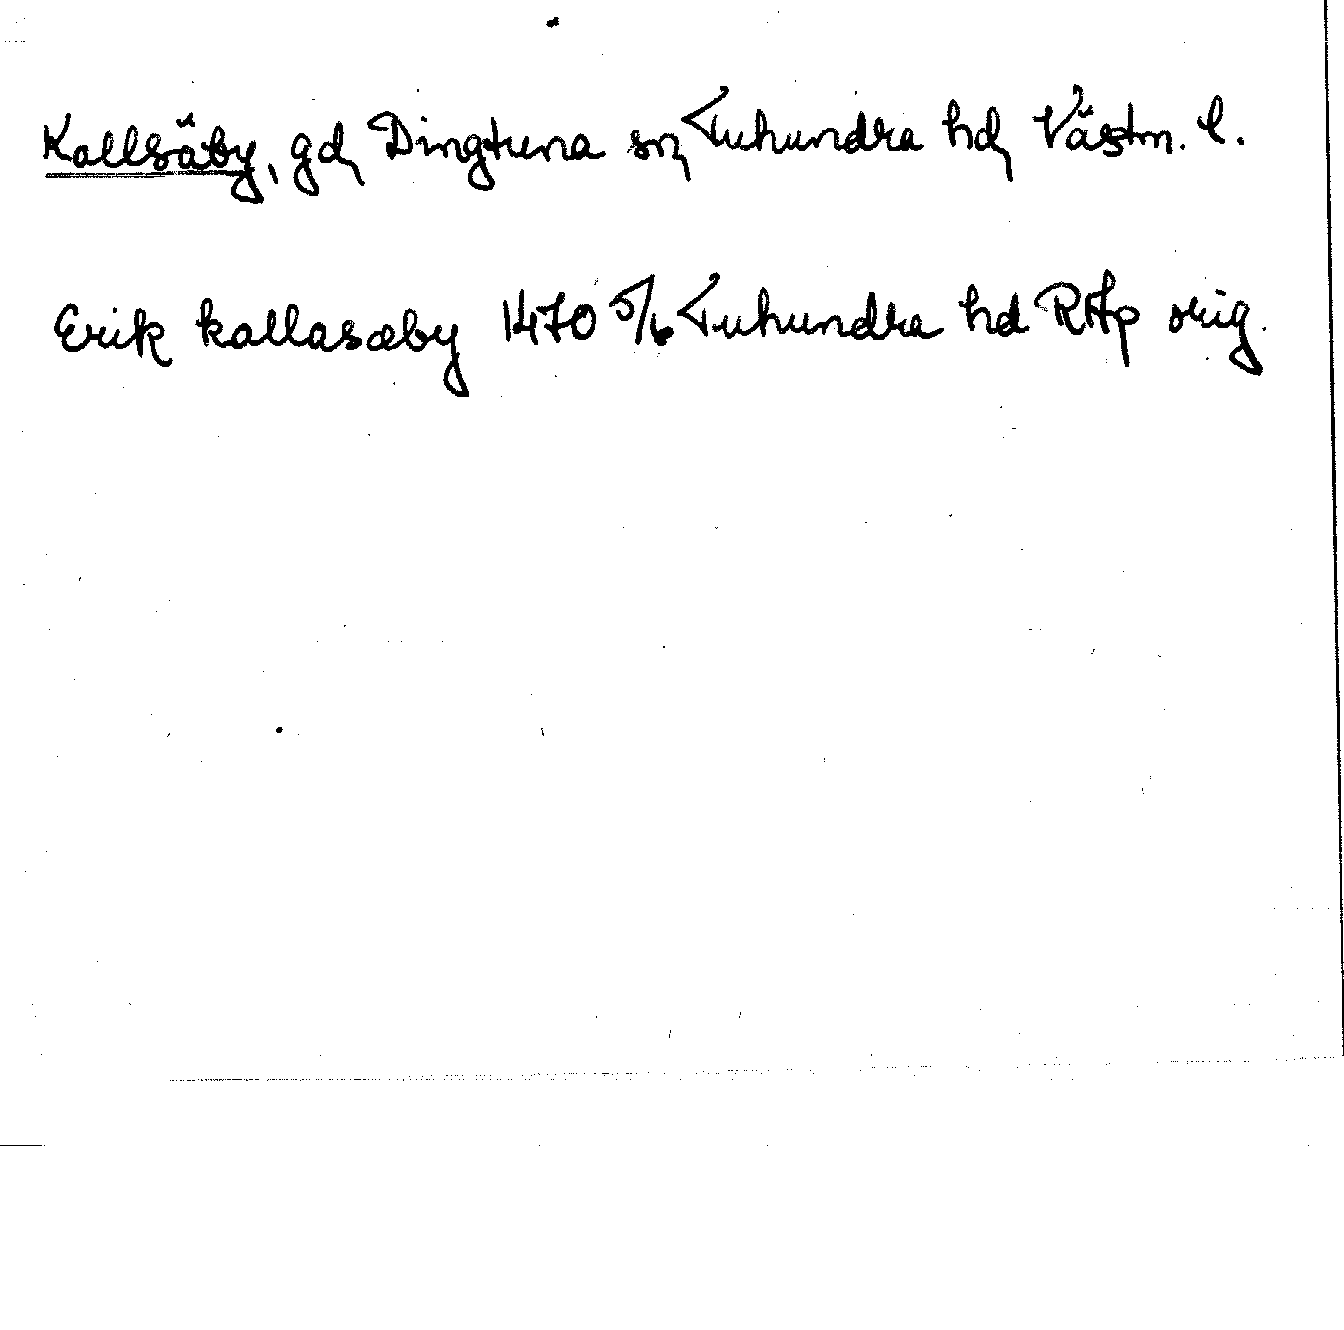 Kallsäby, gd, Dingtuna sn, Tuhundra hd, Västm. l.
Erik kallasæby 1470 5/6 Tuhundra hd RAp orig.